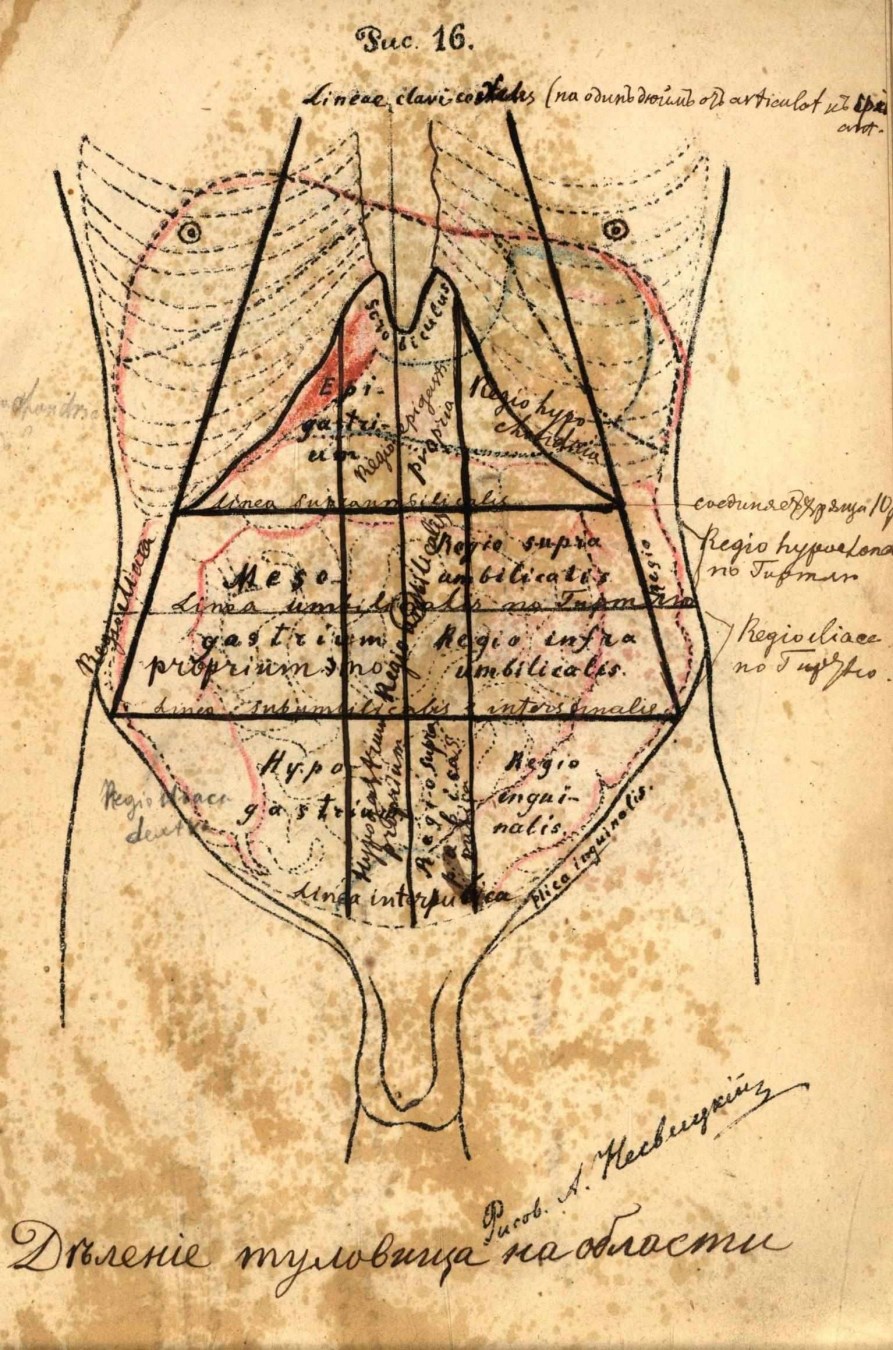 Рис. 16.
Lineae clavi costales (на одинъ дюймъ отъ articulat
Scrobiculus
Epi-
gastri-
um
Regio epigastr.
propria
Regio hypo
chondriaca
Linea supraumbilicalis
Regio iliaca
Meso-
gastrium
proprium
Regio umbilicalis
Regio supra
umbilicalis
Linea umbilicalis по
Regio infra
umbilicalis.
Regio
Regio
по
Regio iliaca
по
Linea subumbilicalis s. interspinalis
Hypo-
gastrium
Hypogastrium
proprium
Regio supra
pubica
Regio
ingui-
nalis.
Regio iliaca
dextra
Linea interpubica
Plica inguinalis.
Рисов. А. Несвицкій
Дѣленіе туловища на области